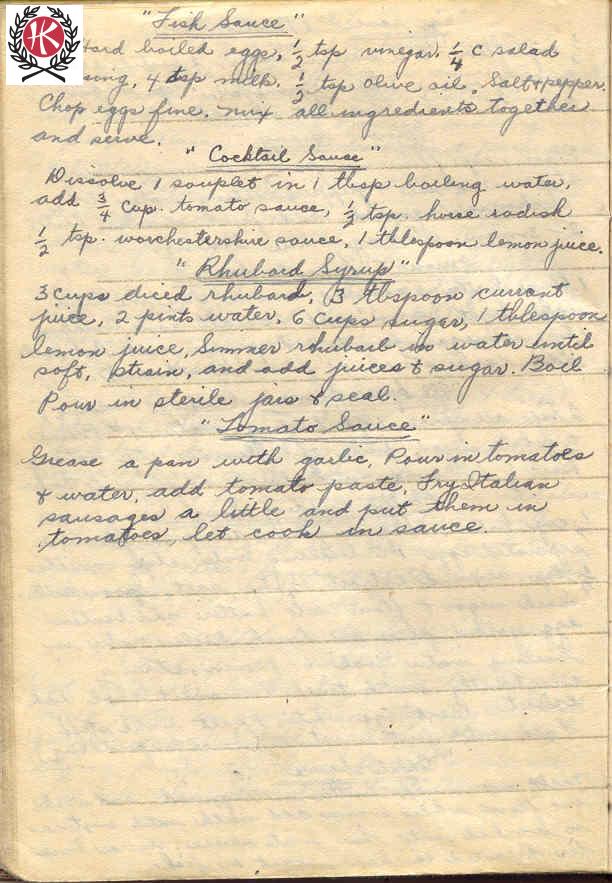 HK
"Fish Sauce"
Hard boiled eggs, 1/2 tsp vinegar. 1/4 c salad
4 tsp milk. 1/2 tsp olive oil, Salt & pepper.
Chop eggs fine. Mix all ingredients together
and serve.
"Cocktail Sause"
Dissolve 1 souplet in 1 tbsp boiling water,
add 3/4 cup. tomato sauce, 1/2 tsp. horse radish
1/2 tsp. worchestershire sauce, 1 tblespoon lemon juice.
"Rhubard Syrup"
3 cups diced rhubard, 3 tbspoon currant
juice, 2 pints water, 6 cups sugar, 1 tblespoon
lemon juice, Simmer rhubarb in water until
soft, strain, and add juices & sugar. Boil
Pour in sterile jars & seal.
"Tomato Sauce"
Grease a pan with garlic, Pour in tomatoes
& water, add tomato paste, Fry Italian
sausages a little and put them in
tomatoes, let cook in sauce.